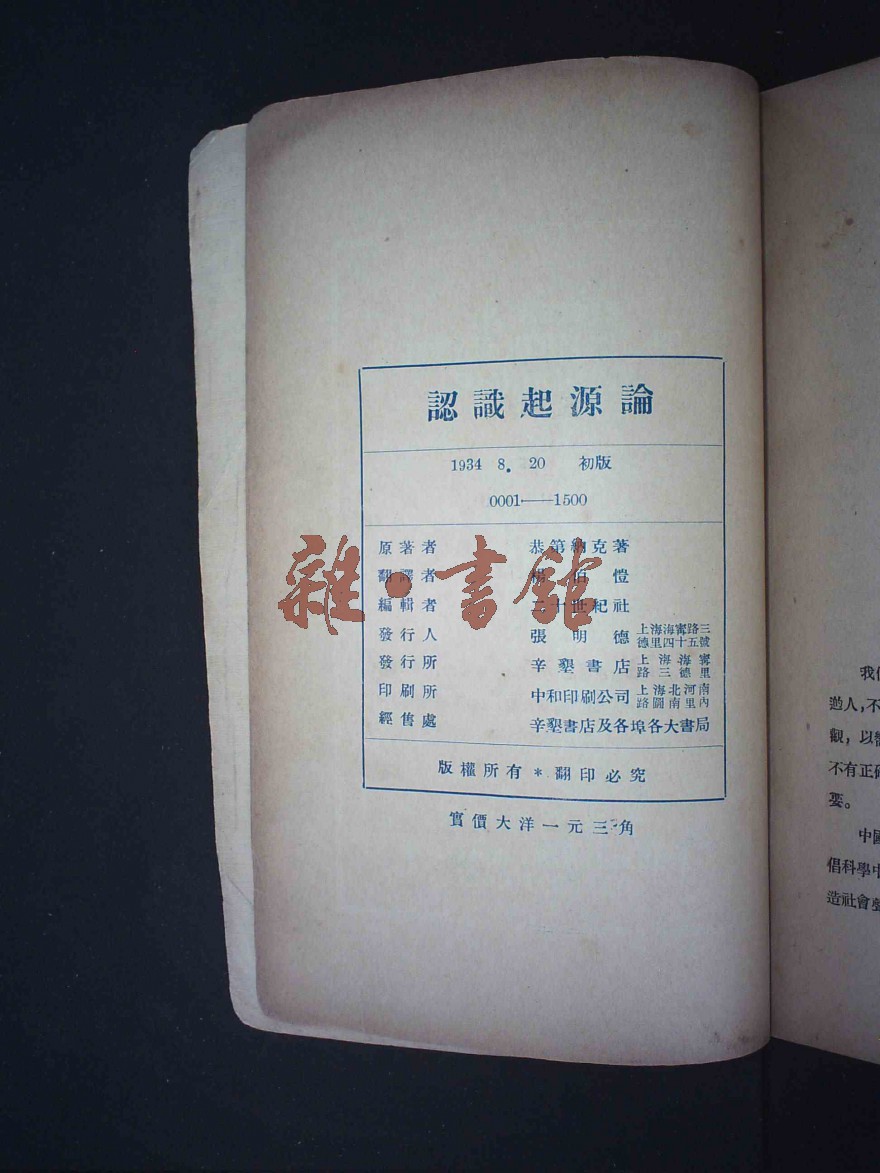 認識起源論
1934 8. 20 初版
0001——1500
原著者 恭第納克著
翻譯者 楊伯愷
編輯者 二十世紀社
發行人 張明德 上海海甯路三德里四十五號
發行所 辛墾書店 上海海甯路三德里
印刷所 中和印刷公司 上海北河南路圖南里內
經售處 辛墾書店及各埠各大書局
版權所有 * 翻印必究
實價大洋一元三角
雜·書館
我
人,不
觀,以
不有正確
要。
中國
倡科學中
造社會